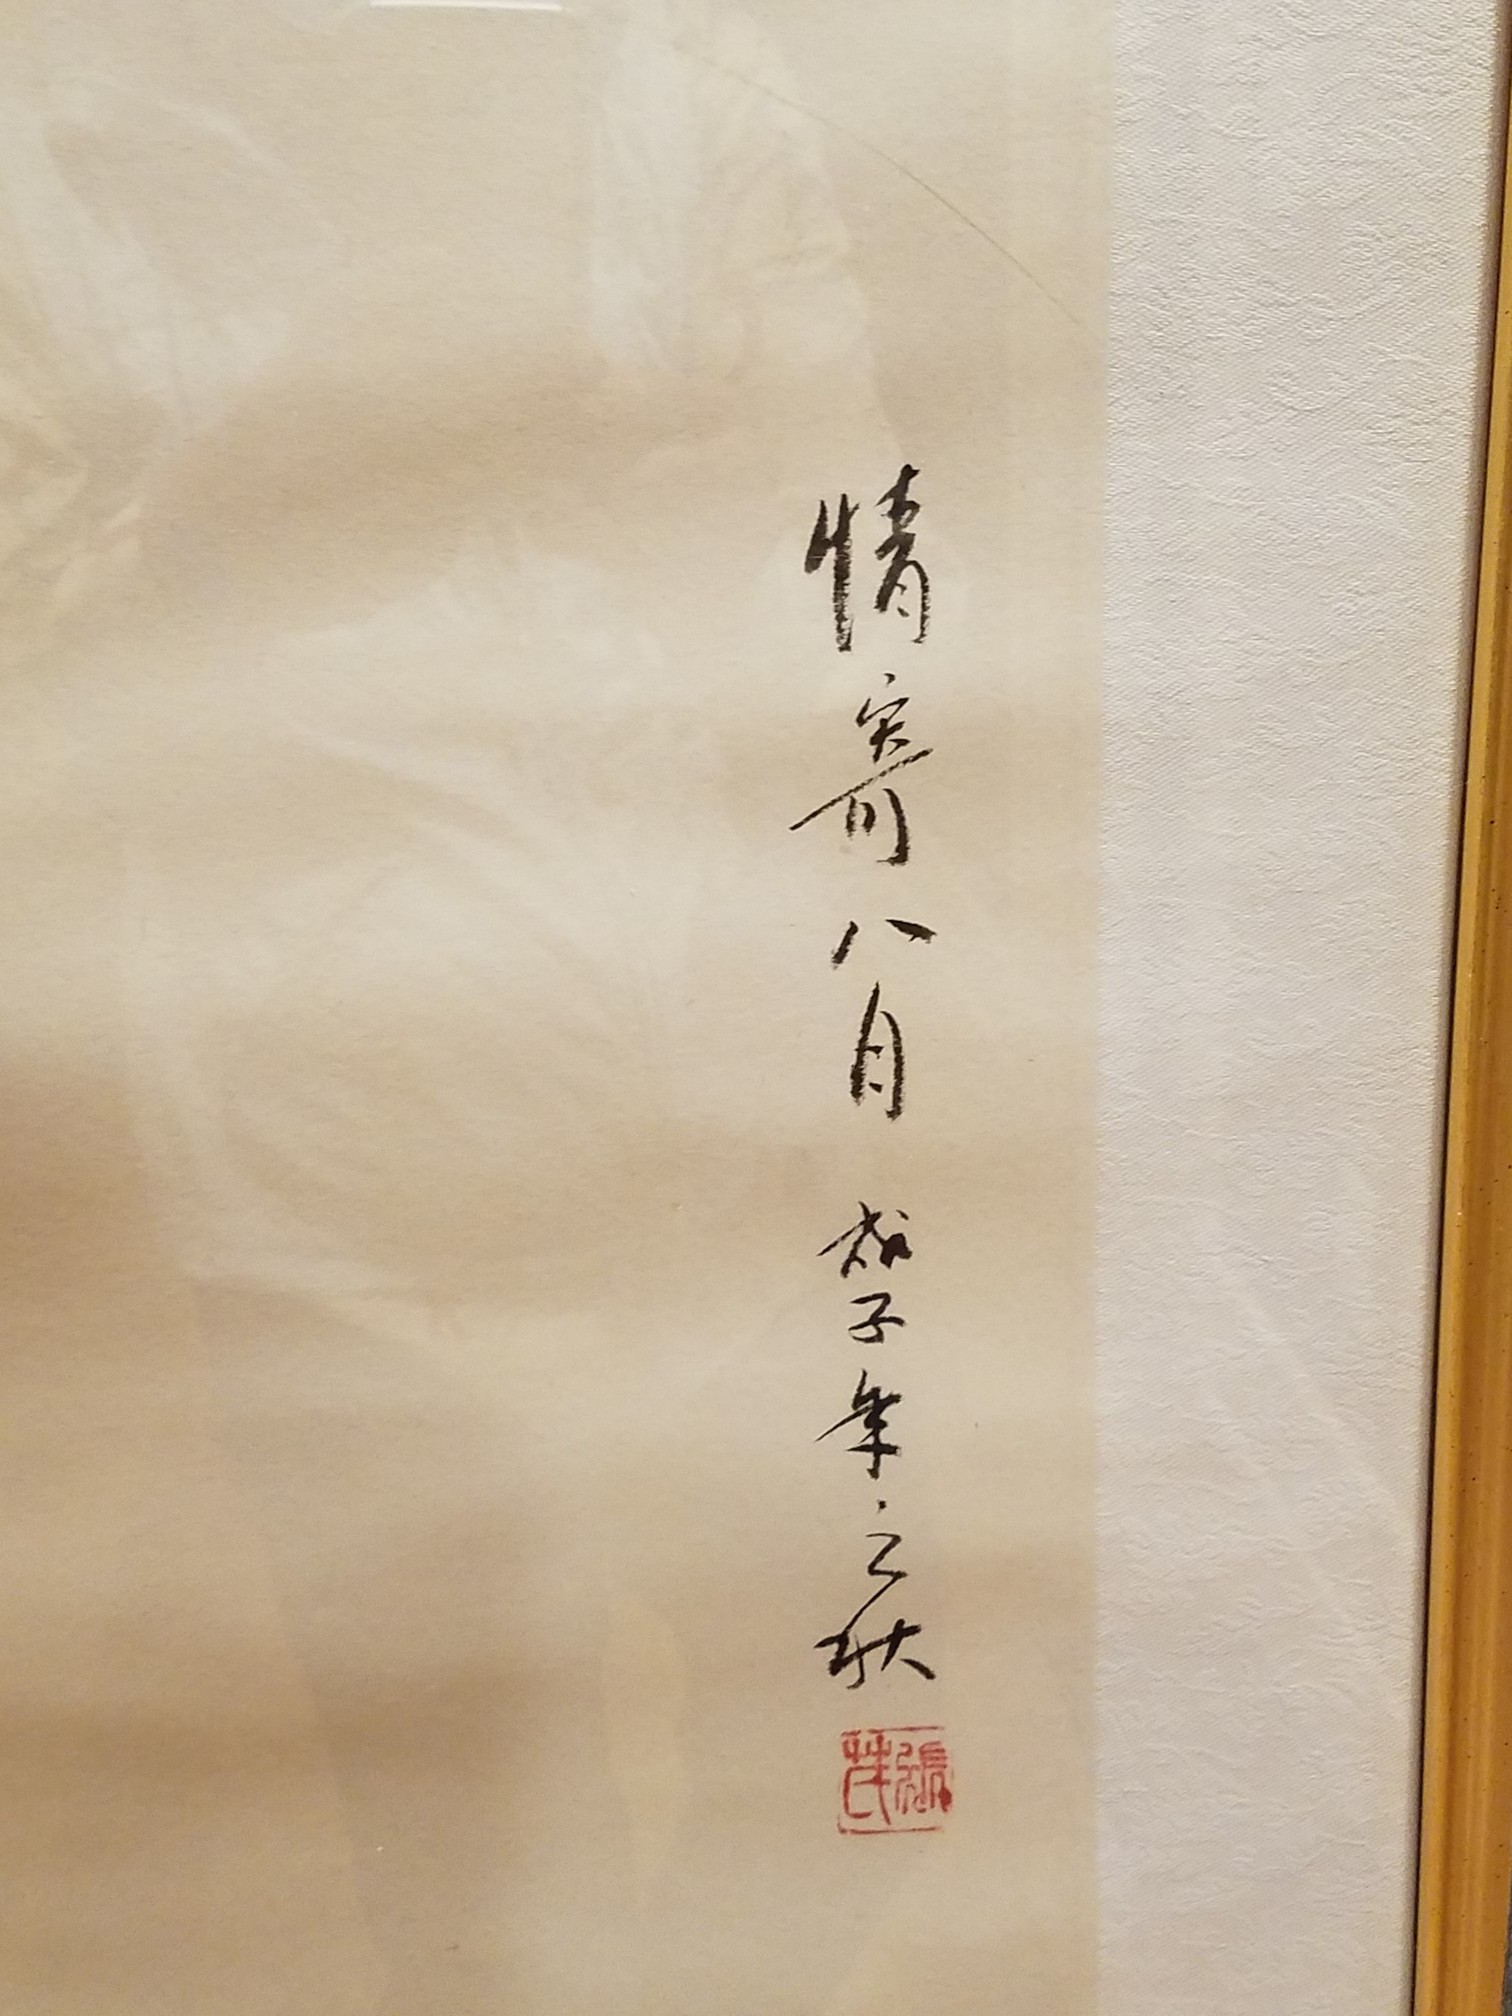 情寄八月 猴子年之秋
張茂